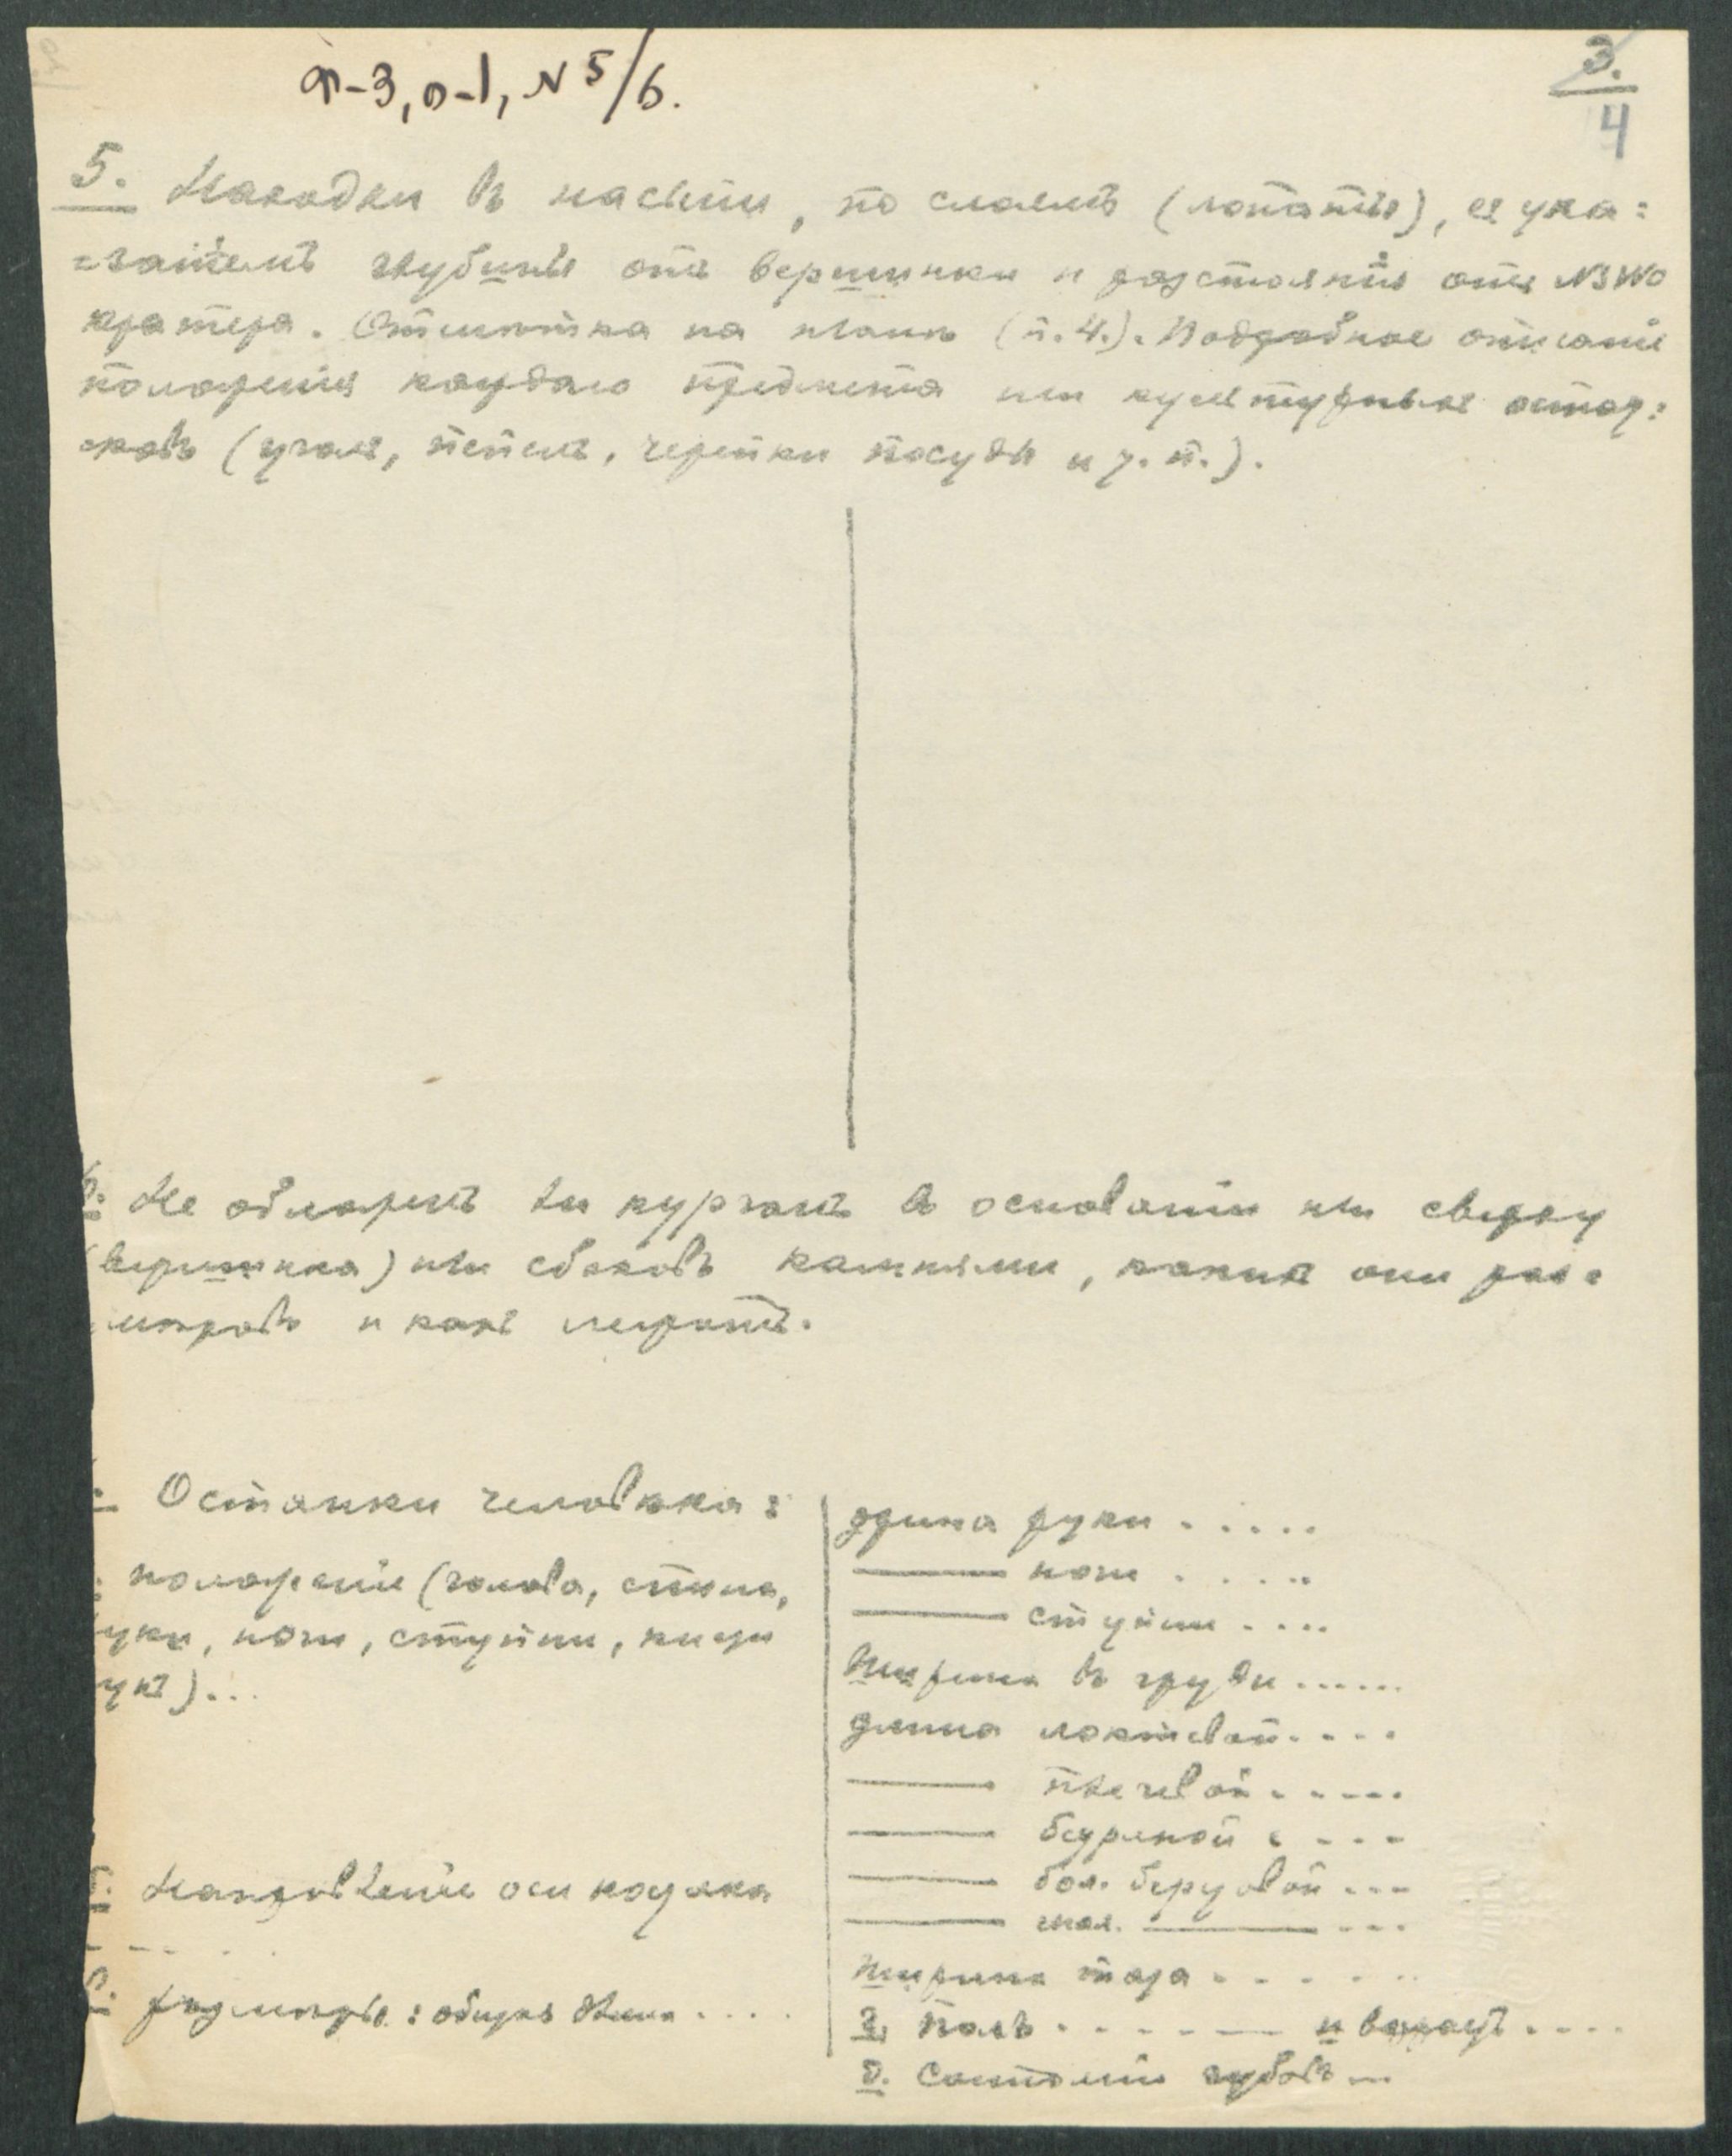 ф-3, о-1, № 5/6.
3.
4
5. Находки въ насыпи, по слоямъ (лопаты), съ ука=
=занiемъ глубины отъ вершинки и разстоянiя отъ NSWO
кратера. Отмѣтка на планѣ (п.4.). Подробное описанiе
положенiя каждаго предмета или культурныхъ остат=
ковъ (уголь, пепелъ, черепки посуды и т. п.).
6. Не обложенъ ли курганъ въ основанiи или сверху
(вершинка) или съ боковъ камнями, какихъ они раз=
мѣровъ и какъ лежатъ.
Останки человѣка:
положенiе (голова, спина,
уки, ноги, ступни, кисти
укъ)...
б. Направленiе оси костяка
- - - - -
в. размѣры: общая длина ....
длина руки .....
——— ноги .....
——— ступни ....
ширина въ груди ......
длина локтевой ....
——— плечевой .....
——— бедряной ....
——— бол. берцовой ...
——— мал. ——— ...
ширина таза ......
г. Полъ ...... и возрастъ ....
д. Состоянiе зубовъ ...